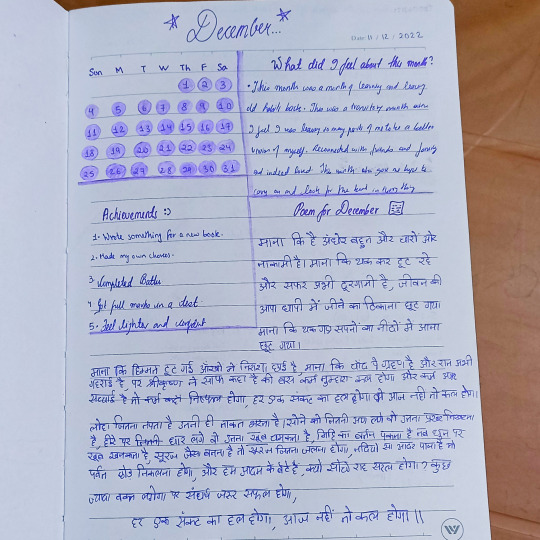 December...
Date: 11 / 12 / 2022
Sun M T W Th F Sa
1 2 3
4 5 6 7 8 9 10
11 12 13 14 15 16 17
18 19 20 21 22 23 24
25 26 27 28 29 30 31
What did I feel about this month?
• This month was a month of learning and leaving
old habits back. This was a transitory month
I feel I was leaving so many parts of me to be a better
version of myself. Reconnected with friends and family
and indeed loved. This month also gave me hope to
carry on and look for the best in everything
Achievements :)
1. Wrote something for a new book.
2. Made my own choices.
3. Completed
4. Got full marks in a
5. Feel lighter and confident
Poem for December
माना कि है अंधेरा बहुत और चारो ओर
नाकामी है। माना कि थक कर टूट रहे
और सफर अभी दूरगामी है, जीवन की
आपा धापी में जीने का ठिकाना छूट गया
माना कि थक गए सपनों का नींदों में आना
छूट गया।
माना कि हिम्मत टूट गई आंखो में निराशा छाई है, माना कि चाँद पे ग्रहण है और रात अभी
गहराई है, पर श्रीकृष्ण ने साफ कहा है की बस कर्म तुम्हारा कल होगा और कर्म अगर
सच्चाई है तो कर्म कहाँ निष्फल होगा, हर एक संकट का हल होगा वो आज नहीं तो कल होगा।
लोहा जितना तपता है उतनी ही ताकत भरता है। सोने को जितनी आग लगे वो उतना प्रखर निखरता
है, हीरे पर जितनी धार लगे वो उतना खूब चमकता है, मिट्टी का बर्तन पकता है तब धुन पर
खूब खनकता है, सूरज जैसा बनना है तो सूरज जितना जलना होगा, नदियों सा आदर पाना है तो
पर्वत छोड़ निकलना होगा, और हम आदम के बेटे है, क्यों सोचे राह सरल होगा? कुछ
ज्यादा वक्त लगेगा पर संघर्ष जरूर सफल होगा,
हर एक संकट का हल होगा, आज नहीं तो कल होगा।।
W